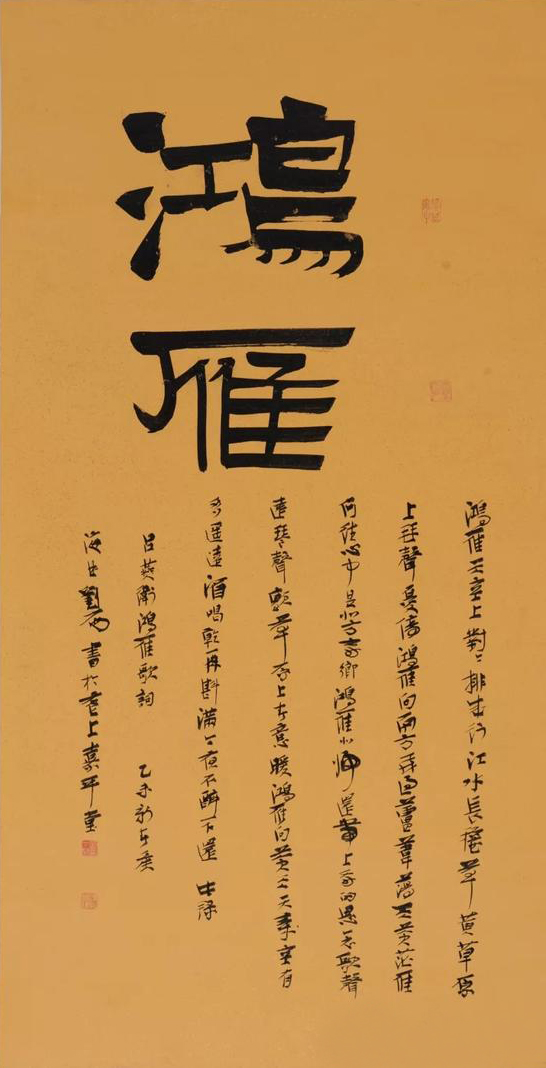 鴻
雁
鴻雁天空上對〻排成行江水長穐草黃草原
上琴聲憂傷鴻雁向南方飛過蘆葦蕩天蒼茫雁
何往心中是北方家鄉鴻雁北歸還帶上我的思念歌聲
遠琴聲顫草原上春意暖鴻雁向蒼天天空有
多遙遠酒喝乾再斟滿今夜不醉不還
呂燕衛鴻雁歌詞 乙未新春
書於上嘉平堂